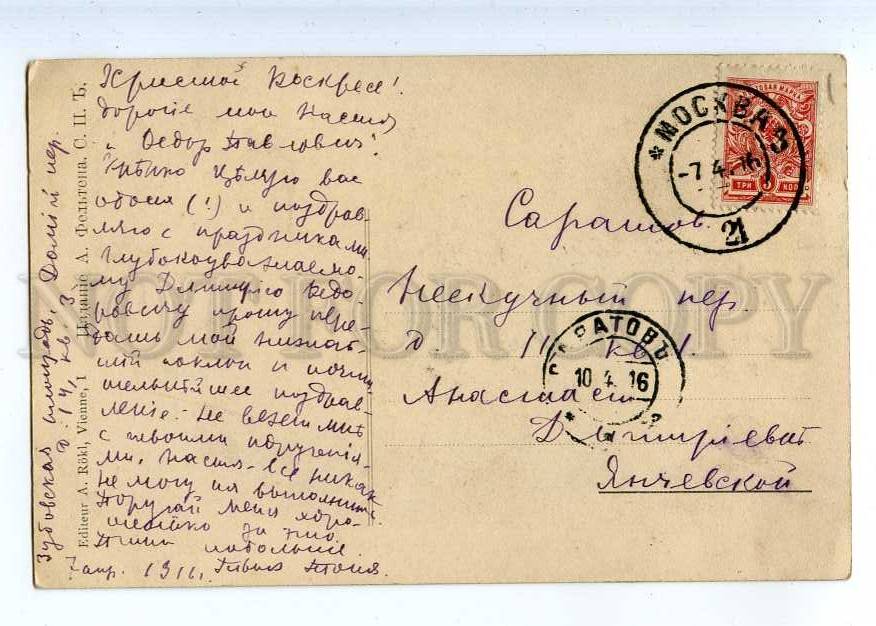 Христос Воскресе!
дорогіе мои Настя
и Федор Павлович!
Крѣпко цѣлую вас
обоих (!) и поздрав
ляю с праздниками
Глубокоуважаемо
му Дмитрію Федо-
ровичу прошу пере-
дать мой низкай
шій поклон и почти
тельнѣйшее поздрав-
леніе. Не везет мнѣ
с твоими порученія-
ми, Настя - все никак
не могу их выполнить.
Поругай меня хоро-
шенько за это.
Пиши побольше.
7 апр. 1916. Твоя Тоня.
Зубовская площадь, Долгій пер.
д. 14, кв. 3
Изданіе А. Фельтена. С. П. Ъ.
Editeur A. Rökl, Vienne, I
ПОЧТОВАЯ МАРКА
ТРИ 3 КОП.
* МОСКВА 3
-7 4. 16
21
Саратов.
Нескучный пер.
д 11 кв 1.
Анастасіи
Дмитріевнѣ
Янчевской
САРАТОВЪ
10 4. 16
NOT FOR COPY